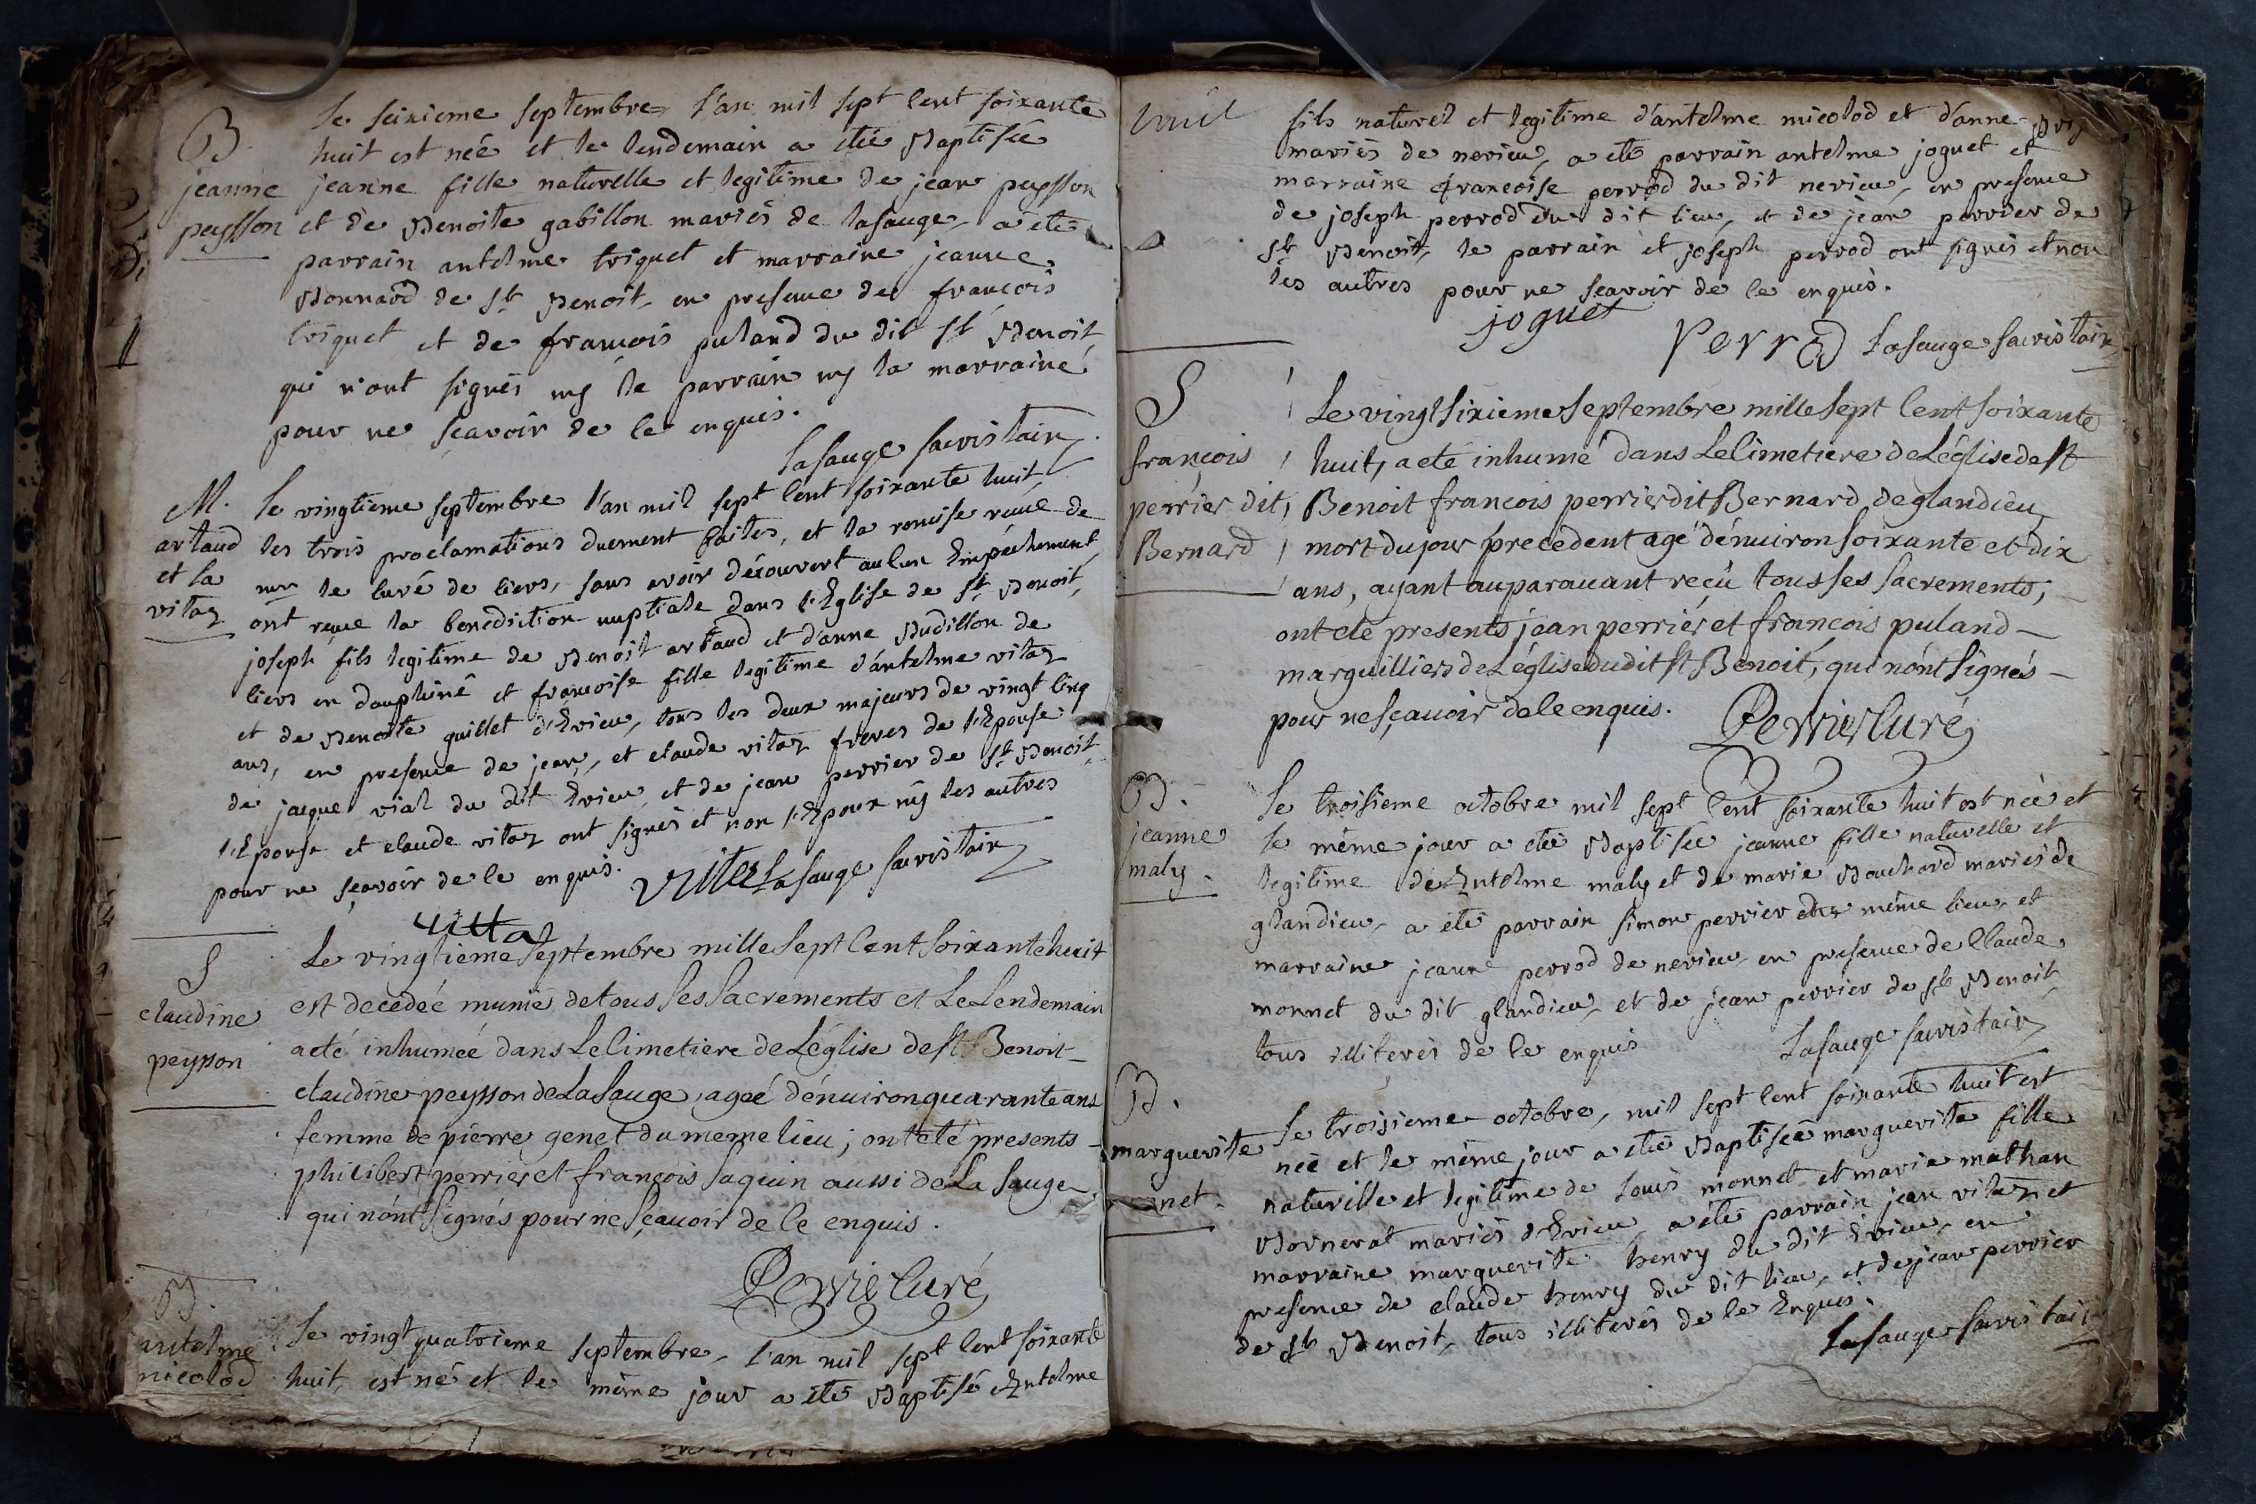 B.
jeanne
peysson
Le seixieme septembre l'an mil sept Cent soixante
huit est neé et le lendemain a étée Baptisée
jeanne fille naturelle et legitime de jean peysson
et de Benoite gabillon mariés de lasauge, a été
parrain antelme triquet et marraine jeanne
Bonnard de St Benoit, en presence de francois
triquet et de francois puland du dit St Benoit,
qui n'ont signés ny le parrain ny la marraine
pour ne sçavoir de ce enquis.
Lasauge sacristain
M.
artaud
et la
vitaz
Le vingtieme septembre l'an mil sept Cent soixante huit,
les trois proclamations duement faites, et la remise reçue de
mr le Curé de Ciers, sans avoir découvert aucun Empéchement,
ont reçue la benediction nuptiale dans l'Eglise de St Benoit,
joseph fils legitime de Benoit artaud et d'anne Budillon de
Ciers en dauphiné et francoise fille legitime d'antelme vitaz
et de Benoite guillet d'Evieu, tous les deux majeurs de vingt Cinq
ans, en presence de jean, et claude vitaz freres de l'Epouse
de jacque vial du dit Evieu, et de jean perrier de St Benoit,
l'Epouse et claude vitaz ont signés et non l'Epoux ny les autres
pour ne sçavoir de ce enquis.
Vites Lasauge sacristain
vitta
S
claudine
peysson
Le vingtieme septembre mille sept Cent soixante huit
est decedeé munie de tous ses sacrements et Le Lendemain
a eté inhumeé dans Le Cimetiere de L'église de st Benoit
claudine peysson de La Sauge, ageé d'énuiron quarante ans
femme de pierre genet du meme lieu; ont eté presents
philibert perrier et françois saquin aussi de La Sauge
qui n'ont signés pour ne sçauoir de ce enquis.
Perrier Curé
B.
antelme
micolod
Le vingt quatrieme septembre, l'an mil sept Cent soixante
huit, est né et le même jour a été Baptisé Antelme
fils naturel et legitime d'antelme micolod et d'anne
mariés de nerieu, a été parrain antelme joguet et
marraine francoise perrod du dit nerieu, en presence
de joseph perrod du dit lieu, et de jean perrier de
St Benoit, le parrain et joseph perrod ont signés et non
les autres pour ne sçavoir de ce enquis.
joguet
Perrod Lasauge sacristain
S
françois
perrier dit
Bernard
Le vingt sixieme septembre mille sept Cent soixante
huit, a eté inhumé dans Le Cimetiere de L'église de st
Benoit francois perrier dit Bernard de glandieu,
mort du jour precedent agé d'énuiron soixante et dix
ans, ayant auparauant reçu tous ses sacrements;
ont eté presents jean perrier et francois puland
marguilliers de L'église du dit st Benoit, qui n'ont signés
pour ne sçauoir de ce enquis.
Perrier Curé
B.
jeanne
maly.
Le troisieme octobre mil sept Cent soixante huit est neé et
le même jour a étée Baptisée jeanne fille naturelle et
legitime de Antelme maly et de marie Bouchard mariés de
glandieu, a été parrain simon perrier du même lieu et
marraine jeanne perrod de nerieu en presence de Claude
monnet du dit glandieu, et de jean perrier de St Benoit
tous illiterés de ce enquis
Lasauge sacristain
B.
marguerite
Le troisieme octobre, mil sept Cent soixante huit est
neé et le même jour a étée Baptisée marguerite fille
naturelle et legitime de Louis monnet et marie mathan
Bornerat mariés d'Evieu, a été parrain jean vitaz et
marraine marguerite henry du dit Evieu, en
presence de claude henry du dit lieu, et de jean perrier
de St Benoit, tous illiterés de ce Enquis.
Lasauge sacristain